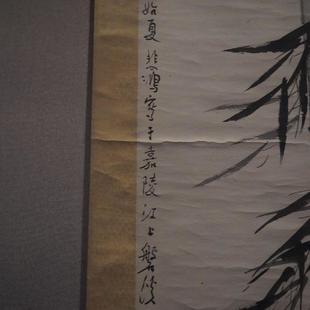 始夏悲鴻寫于嘉陵江上磐溪